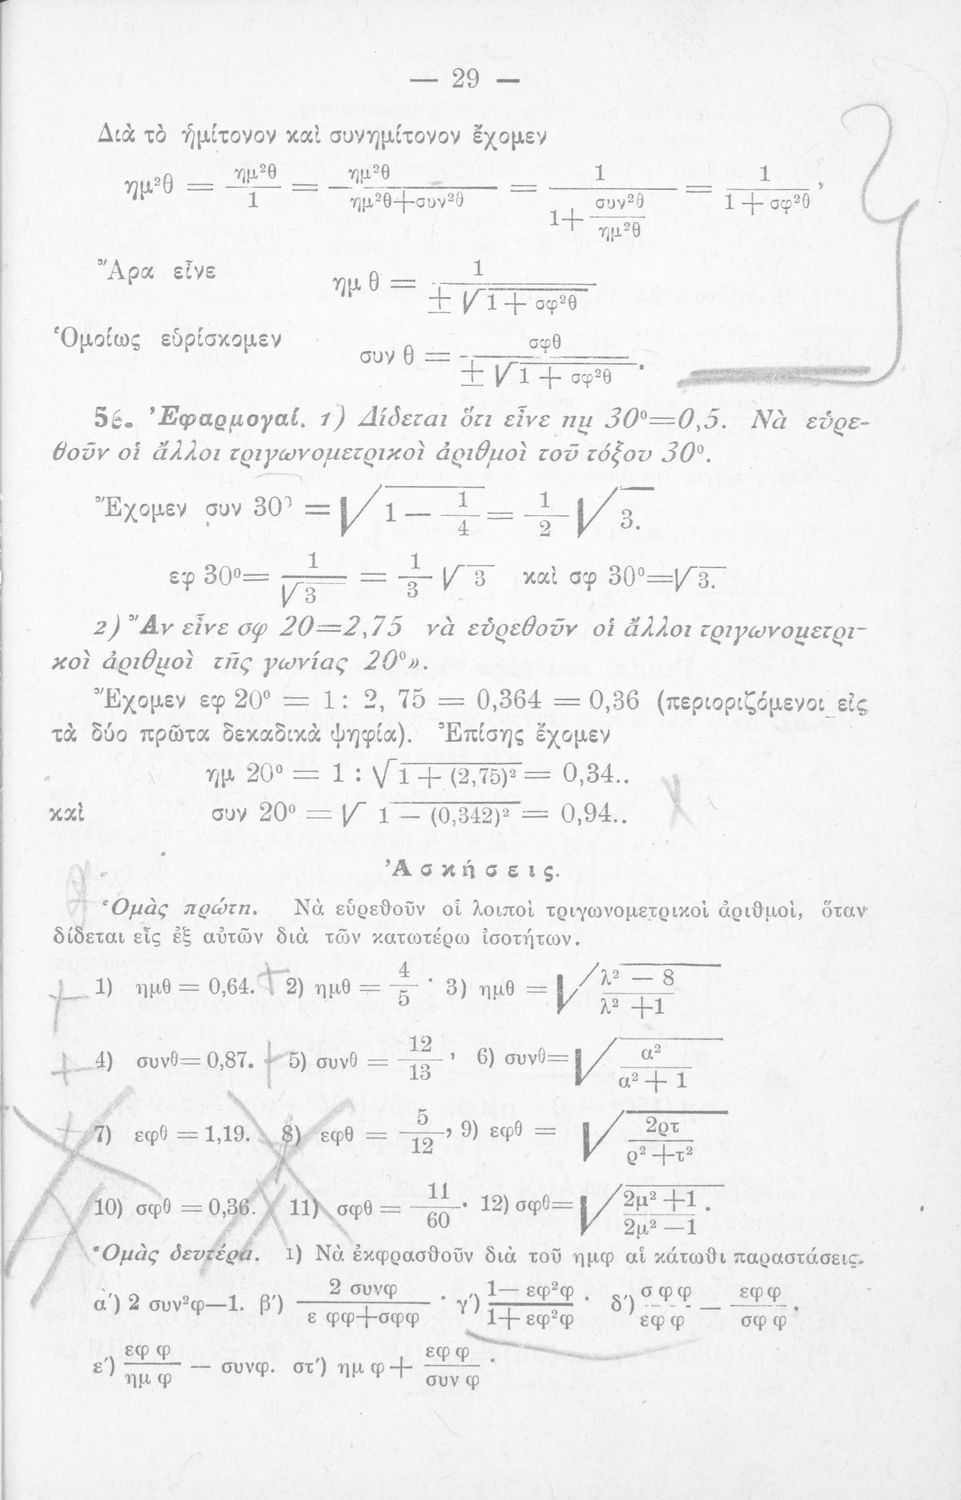 — 29 —
Διὰ τὸ ἡμίτονον καὶ συνημίτονον ἔχομεν
ημ²θ = ημ²θ/1 = ημ²θ/(ημ²θ+συν²θ) = 1/(1+ συν²θ/ημ²θ) = 1/(1+σφ²θ),
Ἄρα εἶνε ημ θ = 1/(± √1+σφ²θ)
Ὁμοίως εὑρίσκομεν συν θ = σφθ/(± √1+σφ²θ).
Ἐφαρμογαί. 1) Δίδεται ὅτι εἶνε ημ 30⁰=0,5. Νὰ εὑρε-
θοῦν οἱ ἄλλοι τριγωνομετρικοὶ ἀριθμοὶ τοῦ τόξου 30⁰.
Ἔχομεν συν 30⁰ = √1 — 1/4 = 1/2 √3.
εφ 30⁰= 1/√3 = 1/3 √3 καὶ σφ 30⁰=√3.
2) Ἂν εἶνε σφ 20=2,75 νὰ εὑρεθοῦν οἱ ἄλλοι τριγωνομετρι-
κοὶ ἀριθμοὶ τῆς γωνίας 20⁰».
Ἔχομεν εφ 20⁰ = 1: 2, 75 = 0,364 = 0,36 (περιοριζόμενοι εἰς
τὰ δύο πρῶτα δεκαδικὰ ψηφία). Ἐπίσης ἔχομεν
ημ 20⁰ = 1 : √1 + (2,75)² = 0,34..
καὶ συν 20⁰ = √ 1 — (0,342)² = 0,94..
Ἀσκήσεις.
Ὁμὰς πρώτη. Νὰ εὑρεθοῦν οἱ λοιποὶ τριγωνομετρικοὶ ἀριθμοὶ, ὅταν
δίδεται εἷς ἐξ αὐτῶν διὰ τῶν κατωτέρω ἰσοτήτων.
1) ημθ = 0,64. 2) ημθ = 4/5 · 3) ημθ = √(λ² — 8)/(λ² +1)
4) συνθ= 0,87. 5) συνθ = 12/13, 6) συνθ= √α²/(α² + 1)
7) εφθ = 1,19. 8) εφθ = 5/12, 9) εφθ = √2ρτ/(ρ² +τ²)
10) σφθ = 0,36. 11) σφθ = 11/60 · 12) σφθ= √(2μ² +1)/(2μ² —1).
Ὁμὰς δευτέρα. 1) Νὰ ἐκφρασθοῦν διὰ τοῦ ημφ αἱ κάτωθι παραστάσεις.
α΄) 2 συν²φ—1. β΄) 2 συνφ/(εφφ+σφφ) · γ΄) (1— εφ²φ)/(1+ εφ²φ) . δ΄) σφφ/εφφ — εφφ/σφφ.
ε΄) εφφ/ημφ — συνφ. στ΄) ημ φ + εφφ/συνφ ·